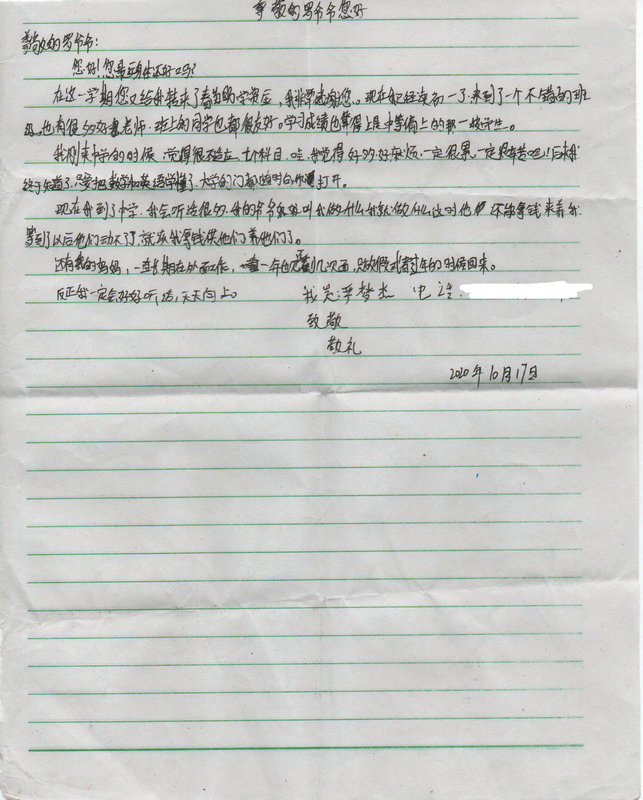 尊敬的罗爷爷您好
尊敬的罗爷爷:
您好!您最近身体还好吗?
在这一学期您又给我转来了春苗助学资后,我非常感谢您。现在我已经读初一了,来到了一个不错的班
级,也有很多好老师,班上的同学也都很友好。学习成绩也算得上是中等偏上的那一些学生。
我刚来中学的时候,觉得很不适应,七个科目,哇,我觉得好多好麻烦,一定很累,一定很辛苦吧!后来我
终于知道了,只要把数学和英语学懂了,大学的门都随时会你打开。
现在我到了中学,我会听话很多,我的爷爷奶奶叫我做什么我就做什么,这时他们还能拿钱来养我,
等到了以后他们动不了了,就该我拿钱供他们养他们了。
还有我的妈妈,一直长期在外面工作,一年也见不到几次面,只放假或者过年的时候回来。
反正我一定会好好听话,天天向上。
我是:梦杰 电话:
致敬
敬礼
2020年10月17日